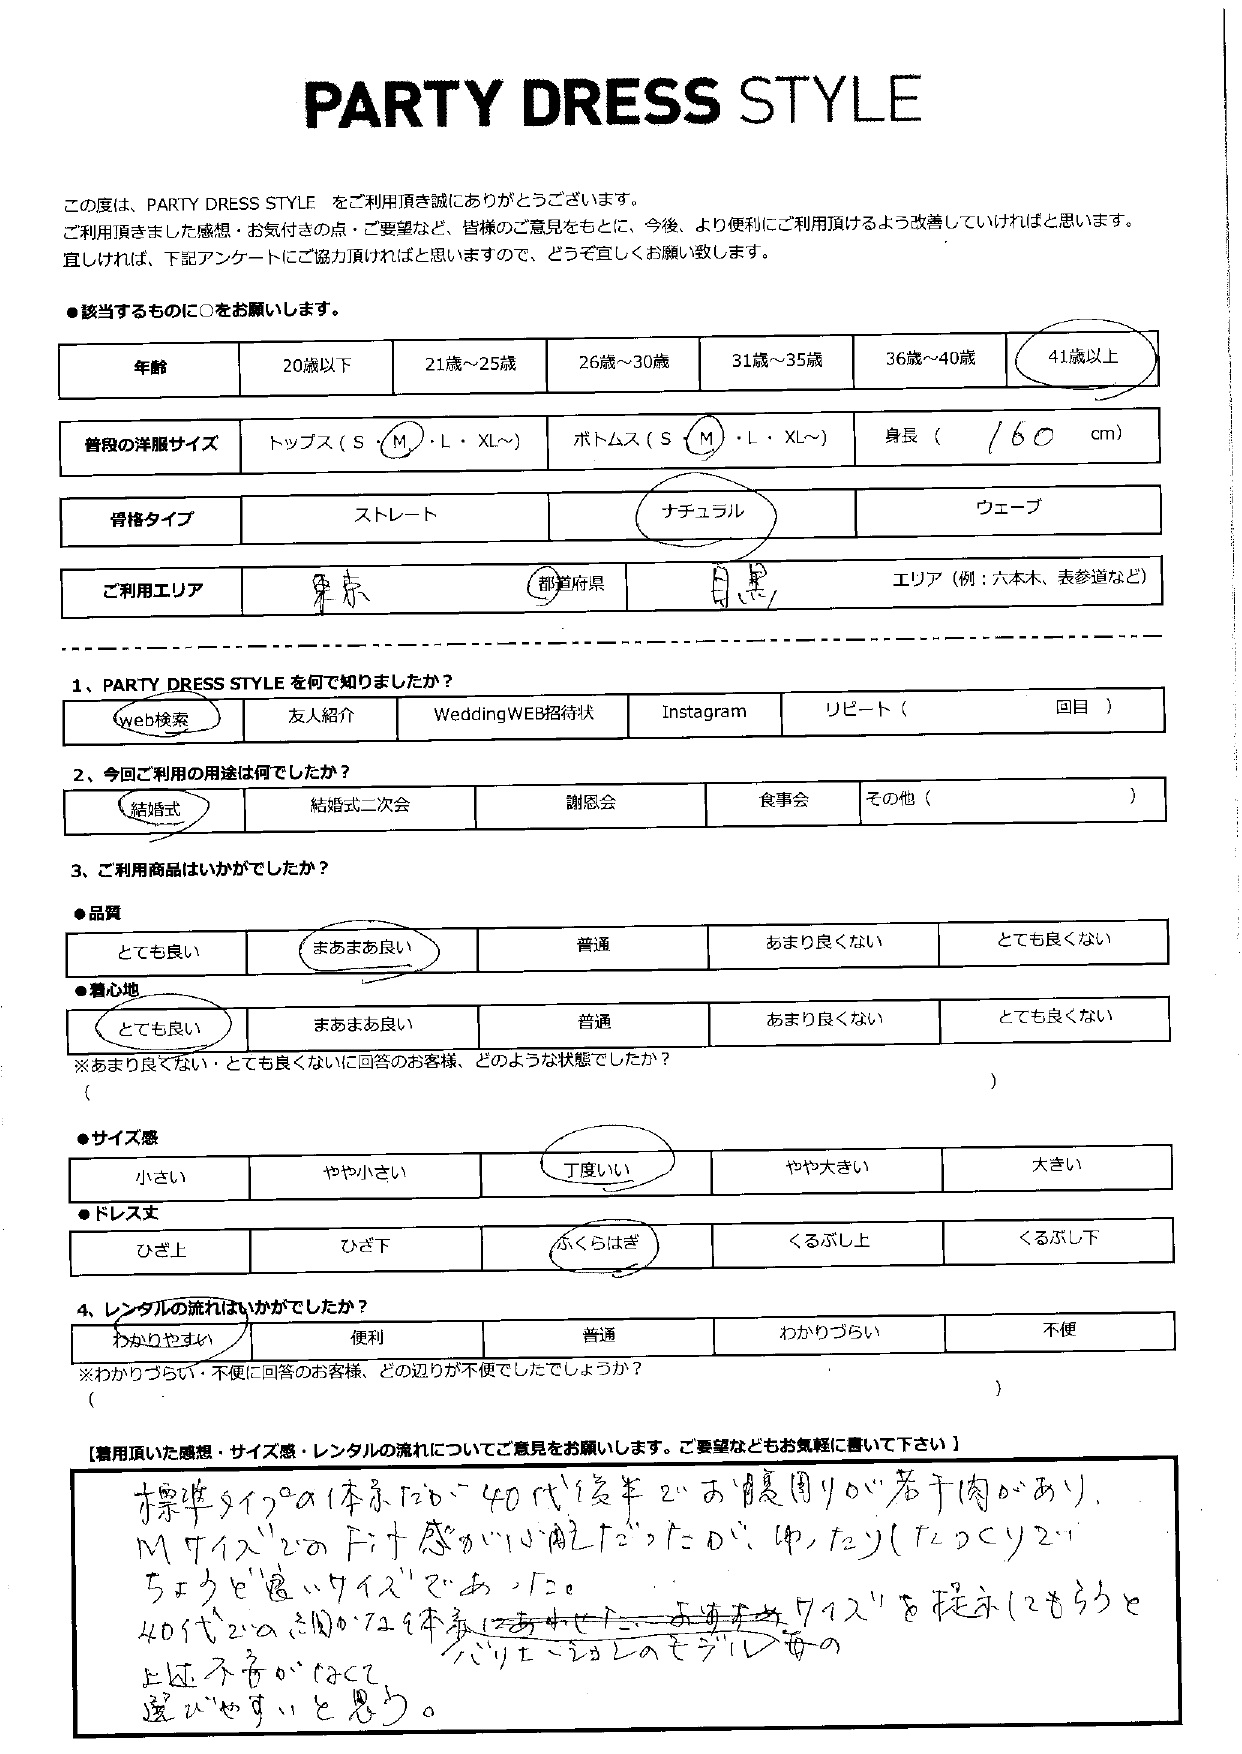 PARTY DRESS STYLE
この度は、PARTY DRESS STYLE をご利用頂き誠にありがとうございます。
ご利用頂きました感想・お気付きの点・ご要望など、皆様のご意見をもとに、今後、より便利にご利用頂けるよう改善していければと思います。
宜しければ、下記アンケートにご協力頂ければと思いますので、どうぞ宜しくお願い致します。
●該当するものに○をお願いします。
年齢 20歳以下 21歳～25歳 26歳～30歳 31歳～35歳 36歳～40歳 41歳以上
普段の洋服サイズ トップス ( S ・ M ・ L ・ XL～) ボトムス ( S ・ M ・ L ・ XL～) 身長 ( 160 cm)
骨格タイプ ストレート ナチュラル ウェーブ
ご利用エリア 東京 都道府県 目黒 エリア（例：六本木、表参道など）
1、PARTY DRESS STYLE を何で知りましたか？
web検索 友人紹介 WeddingWEB招待状 Instagram リピート ( 回目 )
2、今回ご利用の用途は何でしたか？
結婚式 結婚式二次会 謝恩会 食事会 その他 ( )
3、ご利用商品はいかがでしたか？
●品質
とても良い まあまあ良い 普通 あまり良くない とても良くない
●着心地
とても良い まあまあ良い 普通 あまり良くない とても良くない
※あまり良くない・とても良くないに回答のお客様、どのような状態でしたか？
( )
●サイズ感
小さい やや小さい 丁度いい やや大きい 大きい
●ドレス丈
ひざ上 ひざ下 ふくらはぎ くるぶし上 くるぶし下
4、レンタルの流れはいかがでしたか？
わかりやすい 便利 普通 わかりづらい 不便
※わかりづらい・不便に回答のお客様、どの辺りが不便でしたでしょうか？
( )
【着用頂いた感想・サイズ感・レンタルの流れについてご意見をお願いします。ご要望などもお気軽に書いて下さい 】
標準タイプの体系だが40代後半でお腹周りが若干肉があり、
MサイズでのFit感が心配だったが、ゆったりしたつくりで
ちょうど良いサイズであった。
40代での細かな体系にあわせた おすすめ サイズを提示してもらうと
バリエーションのモデル毎の
上述不安がなくて
選びやすいと思う。